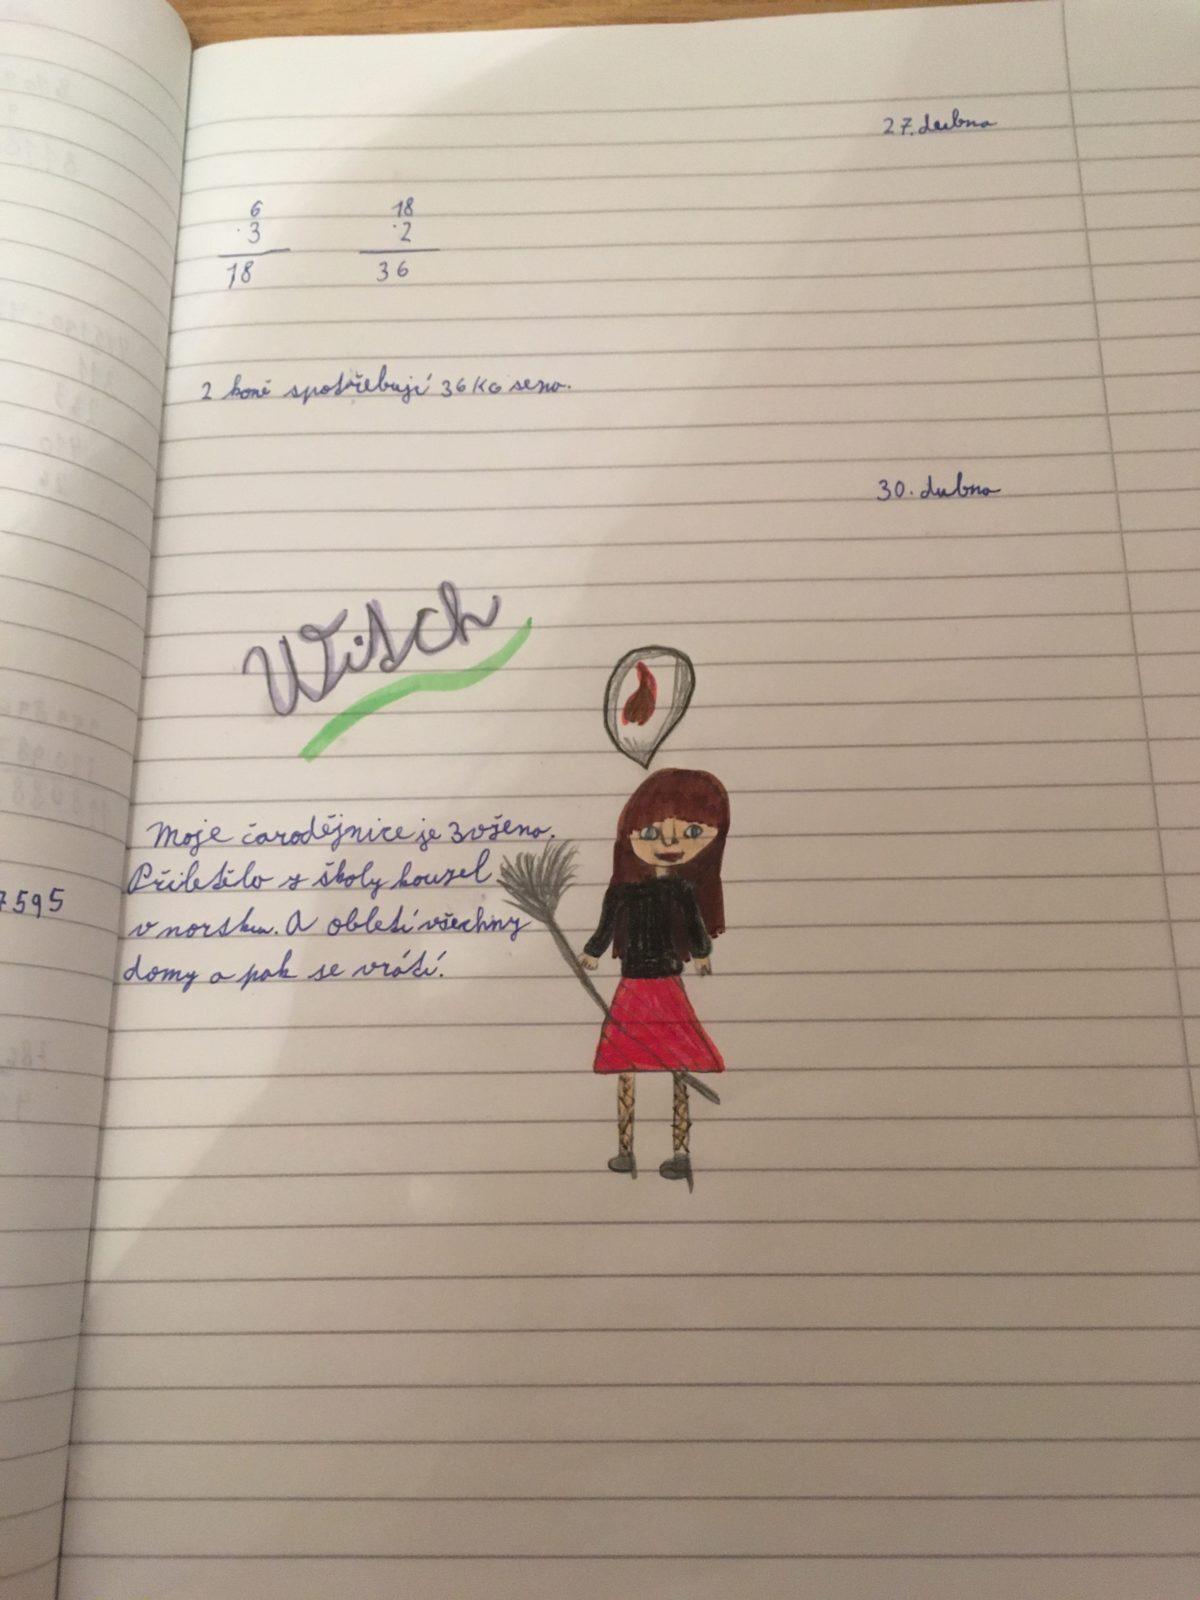 27. dubna
6 18
·3 ·2
18 36
2 koně spotřebují 36 KG sena.
30. dubna
Witsch
Moje čarodějnice je
Přiletěla z školy kouzel
7595
v norsku. A obletí všechny
domy a pak se vrátí.